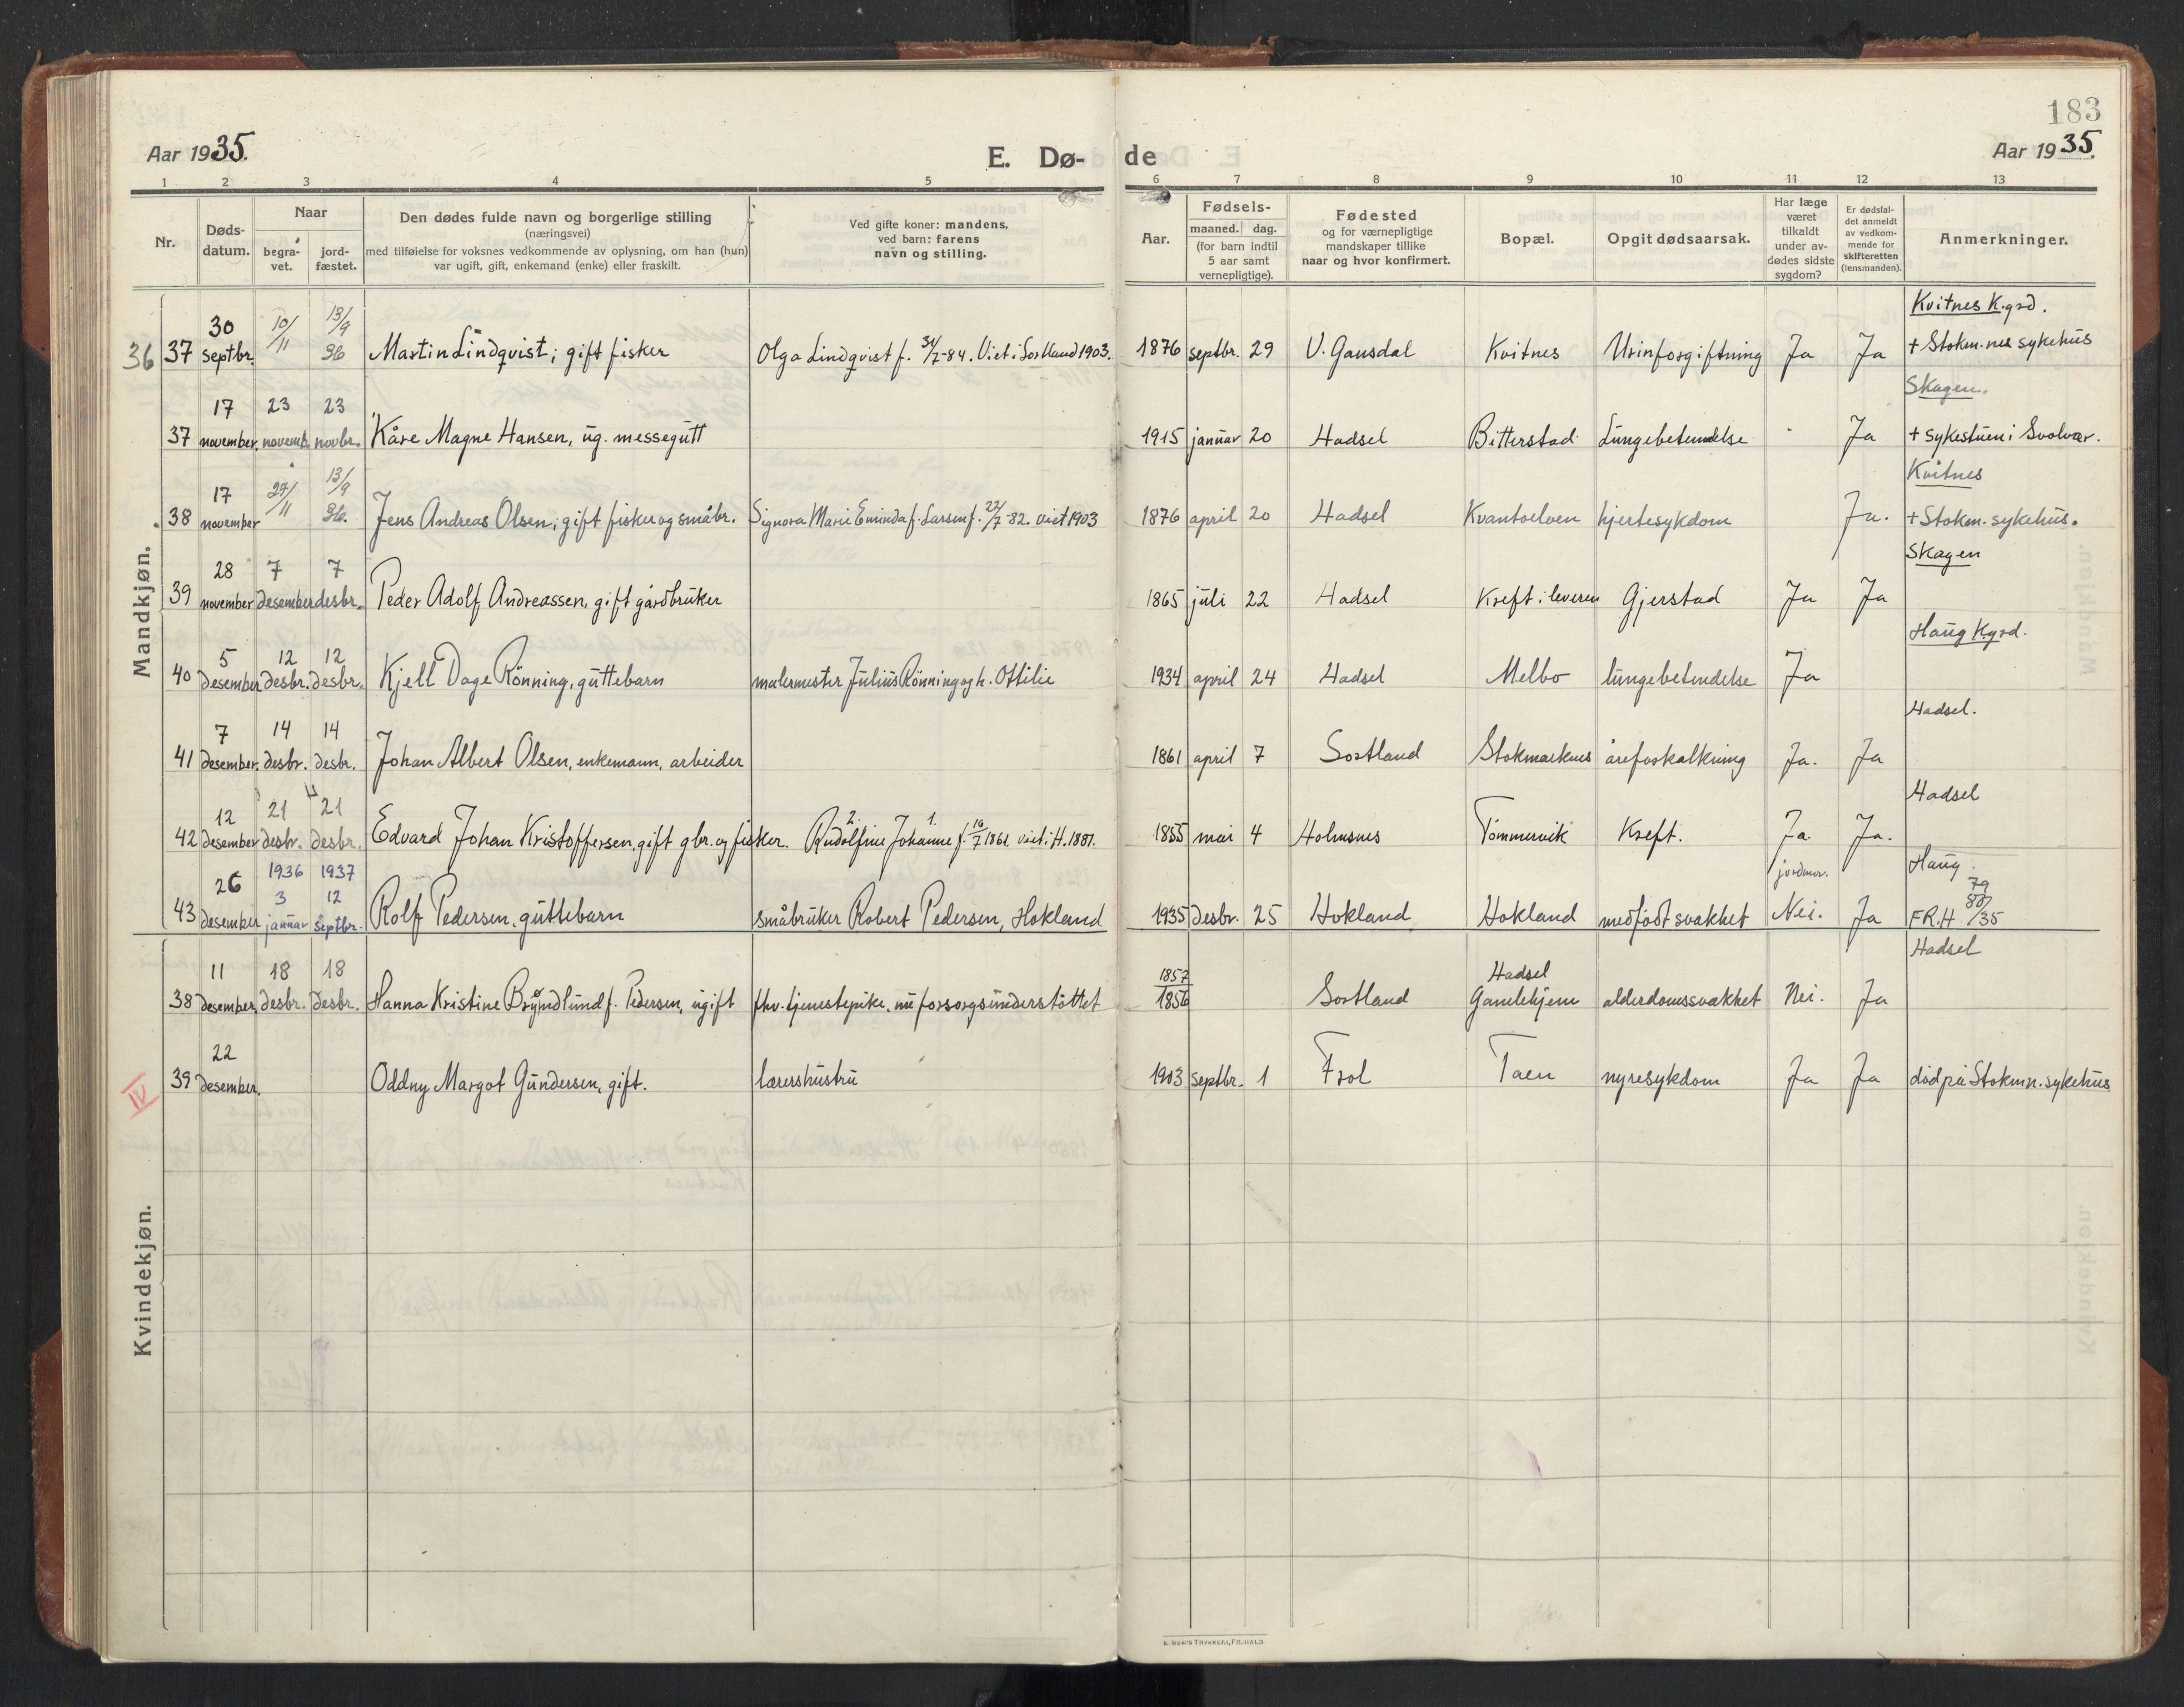 183
Aar 1935.
E. Dø-
de
Aar 1935.
1 2 3 4 5 6 7 8 9 10 11 12 13
Nr.
Døds-
datum.
Naar
begra-
vet.
jord-
fæstet.
Den dødes fulde navn og borgerlige stilling
(næringsvei)
med tilføielse for voksnes vedkommende av oplysning, om han (hun)
var ugift, gift, enkemand (enke) eller fraskilt.
Ved gifte koner: mandens,
ved barn: farens
navn og stilling.
Aar.
Fødsels-
maaned. dag.
(for barn indtil
5 aar samt
vernepligtige).
Fødested
og for værnepligtige
mandskaper tillike
naar og hvor konfirmert.
Bopæl.
Opgit dødsaarsak.
Har læge
været
tilkaldt
under av-
dødes sidste
sygdom?
Er dødsfal-
det anmeldt
av vedkom-
mende for
skifteretten
(lensmanden).
Anmerkninger.
Mandkjøn.
30 10/11 13/9 Kvitnes K.grd.
36 37 septbr. 36 Martin Lindqvist; gift fisker Olga Lindqvist f. 31/7-84. Viet i Sortland 1903. 1876 septbr. 29 V. Gausdal Kvitnes Urinforgiftning Ja Ja + Stokm.nes sykehus
17 23 23 Skagen.
37 november. novemb. novbr. Kåre Magne Hansen, ug. messegutt 1915 januar 20 Hadsel Bitterstad Lungebetendelse Ja + sykestuen i Svolvær.
17 27/11 13/9 Kvitnes
38 november 36. Jens Andreas Olsen; gift fisker og småbr. Signora Marie Eminda f. Larsen f. 22/7-82. viet 1903 1876 april 20 Hadsel Kvantoelven hjertesykdom Ja. + Stokm. sykehus.
28 7 7 Skagen
39 november desember desbr. Peder Adolf Andreassen, gift gårdbruker 1865 juli 22 Hadsel Kreft i leveren Gjerstad Ja Ja
5 12 12 Haug K.grd.
40 desember desbr. desbr. Kjell Dage Rönning, guttebarn malermester Julius Rönning og h. Ottilie 1934 april 24 Hadsel Melbo lungebetendelse Ja
7 14 14 Hadsel.
41 desember. desbr. desbr. Johan Albert Olsen, enkemann, arbeider 1861 april 7 Sortland Stokmarknes åreforkalkning Ja. Ja
12 21 21 2. 1. Hadsel
42 desember desbr. desbr. Edvard Johan Kristoffersen, gift gbr. og fisker. Rudolfine Johanne f. 16/7 1861. viet i H. 1881. 1855 mai 4 Holmsnes Tömmervik Kreft. Ja. Ja.
26 1936 1937 jordmor. Haug.
3 12 79
80
43 desember januar septbr. Rolf Pedersen, guttebarn småbruker Robert Pedersen, Hokland 1935 desbr. 25 Hokland Hokland medfödt svakhet Nei. Ja F.R.H /35
Kvindekjøn.
11 18 18 1857 Hadsel Hadsel
38 desember. desbr. desbr. Hanna Kristine Bryndlund f. Pedersen, ugift fhv. tjenestepike. nu forsorgsunderstöttet 1856 Sortland Gamlehjem alderdomssvakhet Nei. Ja
22
IV 39 desember. Oddny Margot Gundersen, gift. lærershustru 1903 septbr. 1 Frol Taen nyresykdom Ja Ja död på Stokmn. sykehus